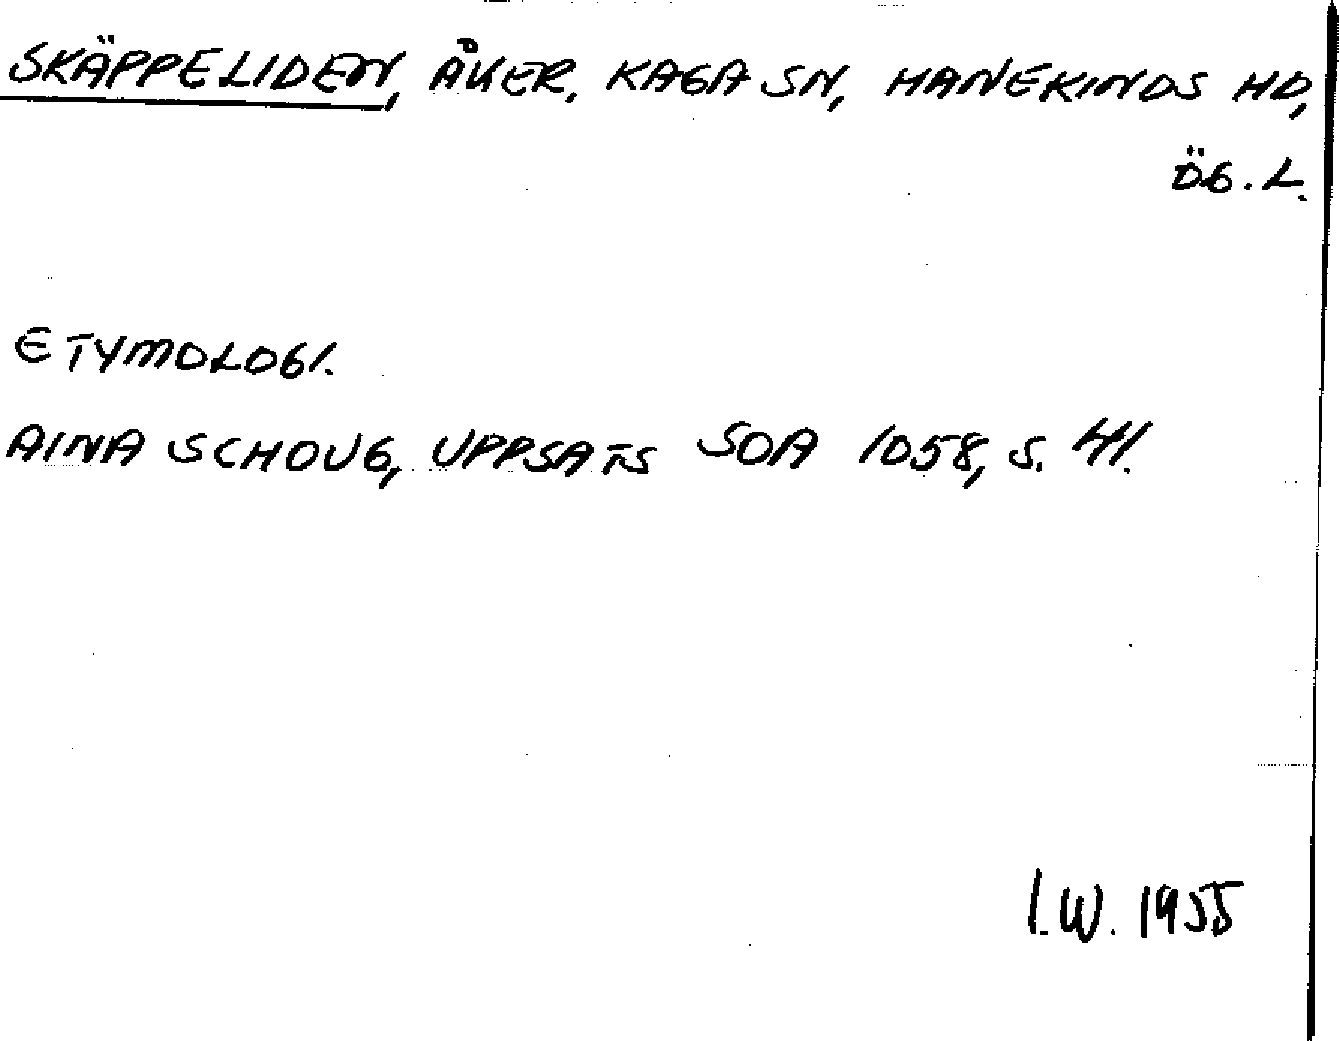 SKÄPPELIDEN, ÅKER, KAGA SN, HANEKINDS HD,
ÖG. L.
ETYMOLOGI.
AINA SCHOUG, UPPSATS SOA 1058, S. 41.
I.W. 1955